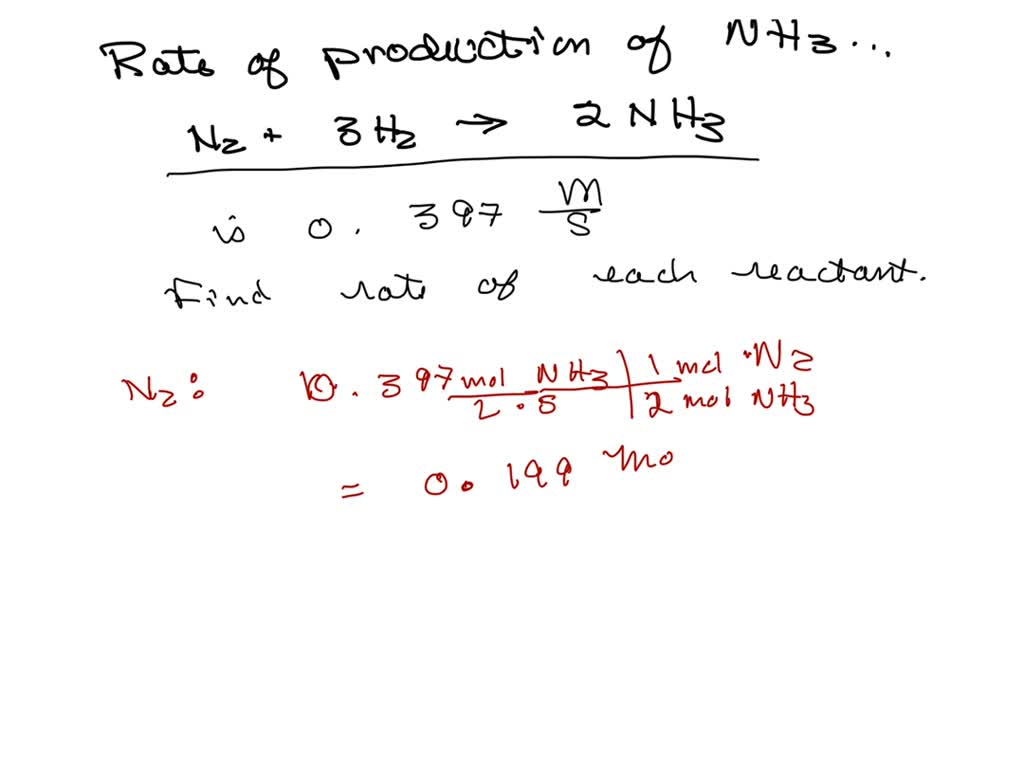 Rate of production of NH3...
N2 + 3H2 → 2NH3
is 0.397 M/S
Find rate of each reactant.
N2: 0.397 mol NH3 / 2·S | 1 mol ·N2 / 2 mol NH3
= 0.199 mo